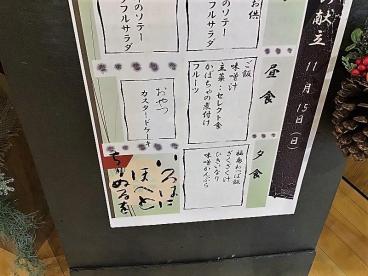 の献立
11月15日(日)
お供
のソテー
フルサラダ
のソテー
フルサラダ
昼食
ご飯
味噌汁
主菜:セレクト食
かぼちゃの煮付け
フルーツ
おやつ
カスタードケーキ
夕食
福島わっぱ飯
ざくざく汁
ひきいなり
味噌かんぷら
いろはに
ほへと
ちりぬるを